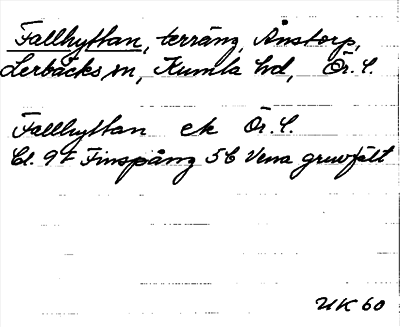 Fallhyttan, terräng, Ånstorp,
Lerbäcks sn, Kumla hd, Ör. l.
Fallhyttan ek Ör. l.
Bl. 9F Finspång 5b Vena gruvfält
UK 60